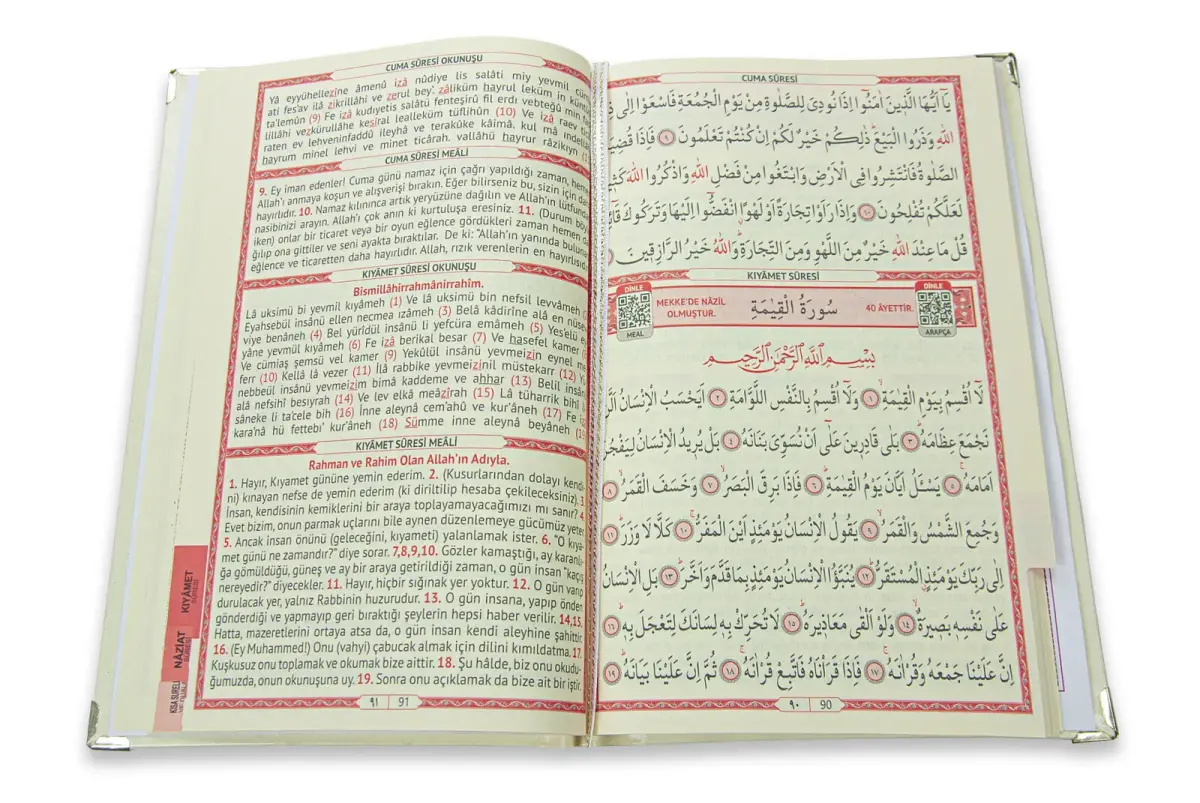 CUMA SÛRESİ
يَٓا اَيُّهَا الَّذٖينَ اٰمَنُٓوا اِذَا نُودِيَ لِلصَّلٰوةِ مِنْ يَوْمِ الْجُمُعَةِ فَاسْعَوْا اِلٰى
اللّٰهِ وَذَرُوا الْبَيْعَ ذٰلِكُمْ خَيْرٌ لَكُمْ اِنْ كُنْتُمْ تَعْلَمُونَ ٩ فَاِذَا
الصَّلٰوةُ فَانْتَشِرُوا فِي الْاَرْضِ وَابْتَغُوا مِنْ فَضْلِ اللّٰهِ وَاذْكُرُوا اللّٰهَ
لَعَلَّكُمْ تُفْلِحُونَ ١٠ وَاِذَا رَاَوْا تِجَارَةً اَوْ لَهْوًا انْفَضُّٓوا اِلَيْهَا وَتَرَكُوكَ
قُلْ مَا عِنْدَ اللّٰهِ خَيْرٌ مِنَ اللَّهْوِ وَمِنَ التِّجَارَةِ وَاللّٰهُ خَيْرُ الرَّازِقٖينَ
KIYÂMET SÛRESİ
DİNLE
MEAL
MEKKE'DE NÂZİL
OLMUŞTUR.
سُورَةُ الْقِيٰمَةِ
40 ÂYETTİR.
DİNLE
ARAPÇA
بِسْمِ اللّٰهِ الرَّحْمٰنِ الرَّحٖيمِ
لَٓا اُقْسِمُ بِيَوْمِ الْقِيٰمَةِ ١ وَلَٓا اُقْسِمُ بِالنَّفْسِ اللَّوَّامَةِ ٢ اَيَحْسَبُ الْاِنْسَانُ
نَجْمَعَ عِظَامَهُ ٣ بَلٰى قَادِرٖينَ عَلٰٓى اَنْ نُسَوِّيَ بَنَانَهُ ٤ بَلْ يُرٖيدُ الْاِنْسَانُ لِيَفْجُرَ
اَمَامَهُ ٥ يَسْـَٔلُ اَيَّانَ يَوْمُ الْقِيٰمَةِ ٦ فَاِذَا بَرِقَ الْبَصَرُ ٧ وَخَسَفَ الْقَمَرُ ٨
وَجُمِعَ الشَّمْسُ وَالْقَمَرُ ٩ يَقُولُ الْاِنْسَانُ يَوْمَئِذٍ اَيْنَ الْمَفَرُّ ١٠ كَلَّا لَا وَزَرَ ١١
اِلٰى رَبِّكَ يَوْمَئِذٍ الْمُسْتَقَرُّ ١٢ يُنَبَّؤُا الْاِنْسَانُ يَوْمَئِذٍ بِمَا قَدَّمَ وَاَخَّرَ ١٣ بَلِ الْاِنْسَانُ
عَلٰى نَفْسِهٖ بَصٖيرَةٌ ١٤ وَلَوْ اَلْقٰى مَعَاذٖيرَهُ ١٥ لَا تُحَرِّكْ بِهٖ لِسَانَكَ لِتَعْجَلَ بِهٖ ١٦
اِنَّ عَلَيْنَا جَمْعَهُ وَقُرْاٰنَهُ ١٧ فَاِذَا قَرَاْنَاهُ فَاتَّبِعْ قُرْاٰنَهُ ١٨ ثُمَّ اِنَّ عَلَيْنَا بَيَانَهُ ١٩
٩٠ 90
CUMA SÛRESİ OKUNUŞU
Yâ eyyühellezîne âmenû izâ nûdiye lis salâti miy yevmil
ati fes'av ilâ zikrillâhi ve zerul bey', zâliküm hayrul leküm in küntüm
ta'lemûn (9) Fe izâ kudıyetis salâtü fenteşirû fil erdı vebteğû min
lillâhi vezkürullâhe kesîral lealleküm tüflihûn (10) Ve izâ raev
raten ev lehveninfaddû ileyhâ ve terakûke kâimâ, kul mâ
hayrum minel lehvi ve minet ticârah, vallâhü hayrur râzikıyn
CUMA SÛRESİ MEÂLİ
9. Ey iman edenler! Cuma günü namaz için çağrı yapıldığı zaman,
Allah'ı anmaya koşun ve alışverişi bırakın. Eğer bilirseniz bu, sizin için
hayırlıdır. 10. Namaz kılınınca artık yeryüzüne dağılın ve Allah'ın
nasibinizi arayın. Allah'ı çok anın ki kurtuluşa eresiniz. 11. (Durum
iken) onlar bir ticaret veya bir oyun eğlence gördükleri zaman hemen
ğılıp ona gittiler ve seni ayakta bıraktılar. De ki: "Allah'ın yanında
eğlence ve ticaretten daha hayırlıdır. Allah, rızık verenlerin en
KIYÂMET SÛRESİ OKUNUŞU
Bismillâhirrahmânirrahîm.
Lâ uksimü bi yevmil kıyâmeh (1) Ve lâ uksimü bin nefsil levvâmeh
Eyahsebül insânü ellen necmea ızâmeh (3) Belâ kâdirîne alâ en
viye benâneh (4) Bel yürîdül insânü li yefcüra emâmeh (5) Yes'elü
yâne yevmül kıyâmeh (6) Fe izâ berikal besar (7) Ve hasefel kamer
Ve cümiaş şemsü vel kamer (9) Yekûlül insânü yevmeizin eynel
ferr (10) Kellâ lâ vezer (11) İlâ rabbike yevmeizinil müstekarr (12)
nebbeül insânü yevmeizim bimâ kaddeme ve ahhar (13) Belil
alâ nefsihî besıyrah (14) Ve lev elkâ meâzîrah (15) Lâ tüharrik bihî
sâneke li ta'cele bih (16) İnne aleynâ cem'ahû ve kur'âneh (17) Fe
kara'nâ hü fettebı' kur'âneh (18) Sümme inne aleynâ beyâneh
KIYÂMET SÛRESİ MEÂLİ
Rahman ve Rahim Olan Allah'ın Adıyla.
1. Hayır, Kıyamet gününe yemin ederim. 2. (Kusurlarından dolayı kendi-
ni) kınayan nefse de yemin ederim (ki diriltilip hesaba çekileceksiniz). 3.
İnsan, kendisinin kemiklerini bir araya toplayamayacağımızı mı sanır? 4.
Evet bizim, onun parmak uçlarını bile aynen düzenlemeye gücümüz yeter.
5. Ancak insan önünü (geleceğini, kıyameti) yalanlamak ister. 6. "O kıya-
met günü ne zamandır?" diye sorar. 7,8,9,10. Gözler kamaştığı, ay karanlı-
ğa gömüldüğü, güneş ve ay bir araya getirildiği zaman, o gün insan "kaçış
nereyedir?" diyecekler. 11. Hayır, hiçbir sığınak yer yoktur. 12. O gün varıp
durulacak yer, yalnız Rabbinin huzurudur. 13. O gün insana, yapıp önden
gönderdiği ve yapmayıp geri bıraktığı şeylerin hepsi haber verilir. 14,15.
Hatta, mazeretlerini ortaya atsa da, o gün insan kendi aleyhine şahittir.
16. (Ey Muhammed!) Onu (vahyi) çabucak almak için dilini kımıldatma. 17.
Kuşkusuz onu toplamak ve okumak bize aittir. 18. Şu hâlde, biz onu okudu-
ğumuzda, onun okunuşuna uy. 19. Sonra onu açıklamak da bize ait bir iştir.
٩١ 91
KIYÂMET
NÂZİAT